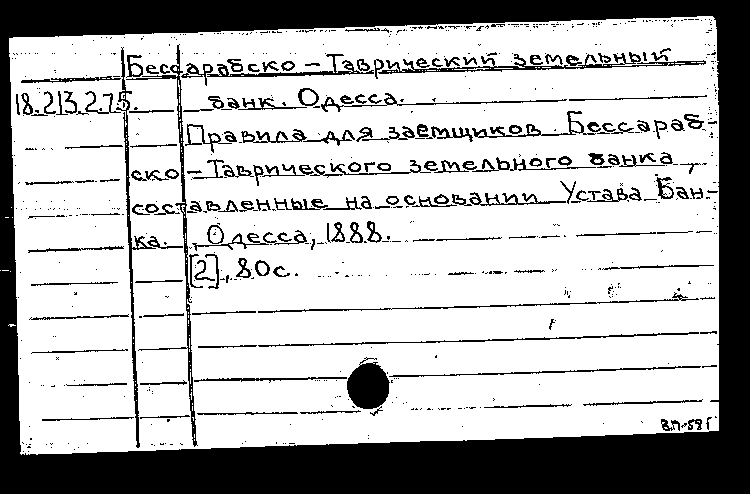 Бессарабско - Таврический земельный
18.213.2.75. банк. Одесса.
Правила для заемщиков Бессараб-
ско - Таврического земельного банка,
составленные на основании Устава Бан-
ка. , Одесса, 1888.
[2], 80 с.